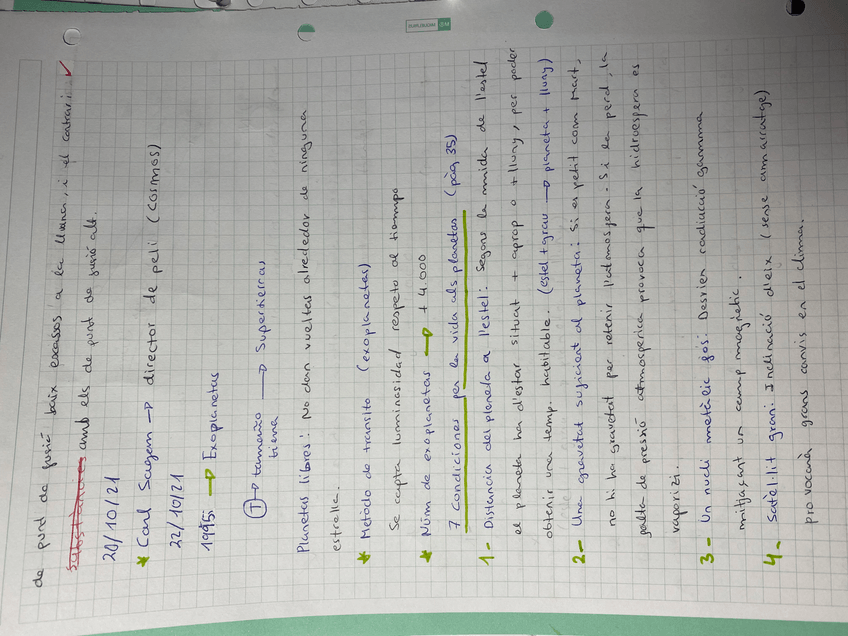 de punt de fusió baix escassos a la lluna, i el contrari.
substàncies amb els de punt de fusió alt.
20/10/21
* Carl Sagem → director de peli (cosmos)
22/10/21
1995: → Exoplanetas
T → tamaño → Supertierras
tierra
Planetas libres: No dan vueltas alrededor de ninguna
estrella.
* Método de transito (exoplanetas)
Se capta luminosidad respeto al tiempo
* Núm de exoplanetas → + 4.000
7 condiciones per la vida als planetas (pàg 35)
1- Distancia del planeta a l'estel: Segons la mida de l'estel
el planeta ha d'estar situat + aprop o + lluny, per poder
obtenir una temp. habitable. (estel + grau → planeta + lluny)
2- Una gravetat suficient al planeta: Si es petit com Mart,
no hi ha gravetat per retenir l'admosfera. Si la perd, la
falta de pressió atmosferica provoca que la hidroesfera es
vaporizi.
3- Un nucli metàlic fos. Desvien radiació gamma
mitjaçant un camp magnètic.
4- Satèl·lit gran: Inclinació d'eix (sense amarratge)
provocarà grans canvis en el clima.